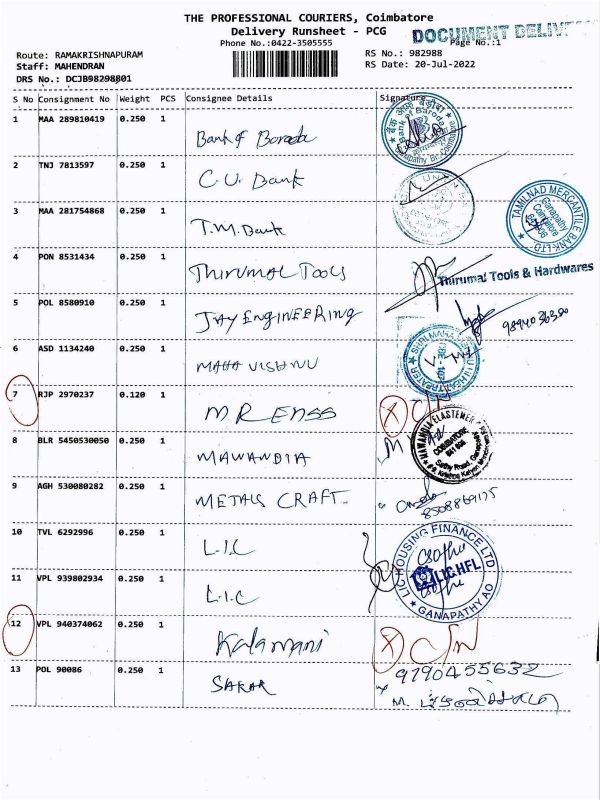 THE PROFESSIONAL COURIERS, Coimbatore
Delivery Runsheet - PCG
DOCUMENT
Phone No.:0422-3505555
Page No.:1
Route: RAMAKRISHNAPURAM
RS No.: 982988
Staff: MAHENDRAN
RS Date: 20-Jul-2022
DRS No.: DCJB98298801
S No Consignment No Weight PCS Consignee Details Signature
1 MAA 289810419 0.250 1 Bank of Baroda
Bank of Baroda
2 TNJ 7813597 0.250 1 C.U. Bank
TAMILNAD MERCANTILE BANK LTD
Ganapathy
Coimbatore
3 MAA 281754868 0.250 1 T.M. Bank
4 PON 8531434 0.250 1 Thirumal Tools
Thirumal Tools & Hardwares
5 POL 8580910 0.250 1 JAY ENGINEERING
6 ASD 1134240 0.250 1 MAHA VISHNU
7 RJP 2970237 0.120 1 MR ENSS
8 BLR 5450530050 0.250 1 MAWANDIA
COIMBATORE
9 AGH 530080282 0.250 1 METALS CRAFT
10 TVL 6292996 0.250 1 L.I.C
LIC HOUSING FINANCE LTD
LIC HFL
GANAPATHY AO
11 VPL 939802934 0.250 1 L.I.C
12 VPL 940374062 0.250 1 Kalamani
13 POL 90086 0.250 1 SAKAR
9790455632